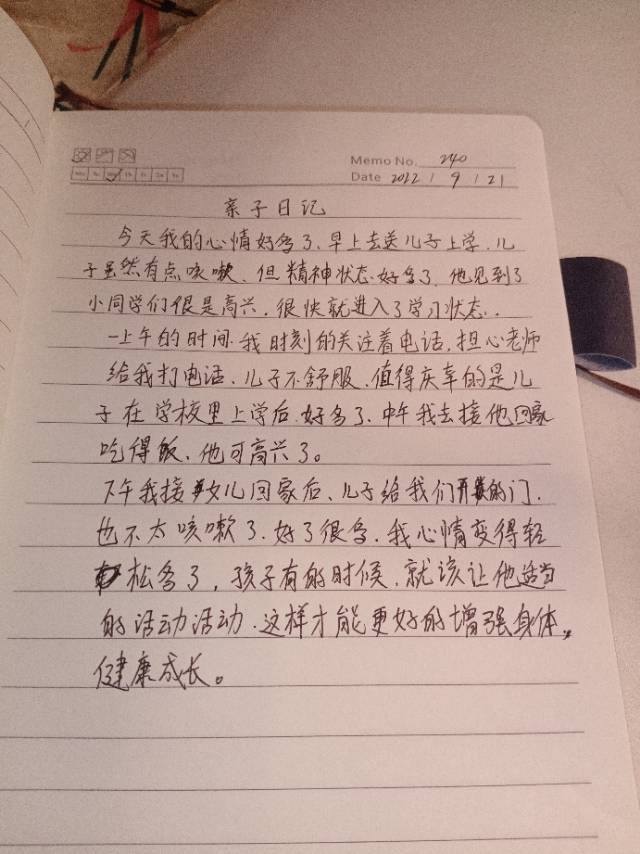 Memo No. 240
Date 2022 / 9 / 21
亲子日记
今天我的心情好多了,早上去送儿子上学,儿
子虽然有点咳嗽,但精神状态好多了,他见到了
小同学们很是高兴,很快就进入了学习状态..
一上午的时间.我时刻的关注着电话,担心老师
给我打电话,儿子不舒服,值得庆幸的是儿
子在学校里上学后,好多了,中午我去接他回家
吃得饭,他可高兴了。
下午我接女儿回家后,儿子给我们开的门,
也不太咳嗽了,好了很多,我心情变得轻
松多了,孩子有的时候,就该让他适当
的活动活动.这样才能更好的增强身体,
健康成长。